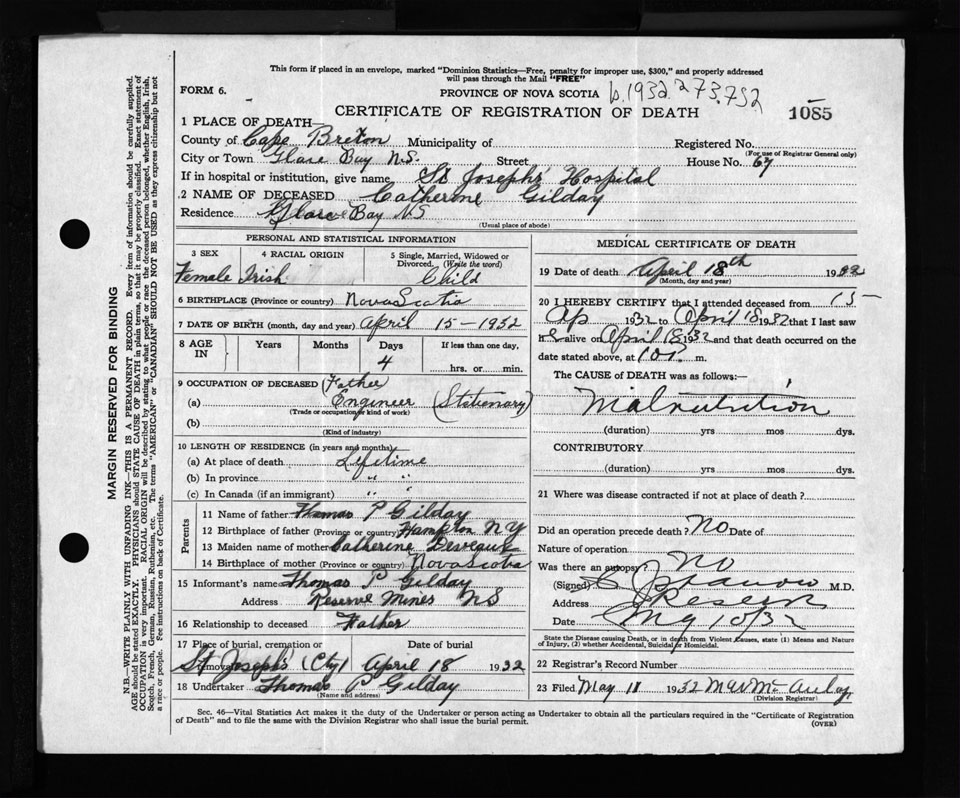 This form if placed in an envelope, marked "Dominion Statistics—Free, penalty for improper use, $300," and properly addressed
will pass through the Mail "FREE"
FORM 6.
PROVINCE OF NOVA SCOTIA b.1932.273.752
CERTIFICATE OF REGISTRATION OF DEATH 1085
1 PLACE OF DEATH—
County of Cape Breton Municipality of Registered No.
(For use of Registrar General only)
City or Town Glace Bay N.S. Street House No. 67
If in hospital or institution, give name St Joseph's Hospital
2 NAME OF DECEASED Catherine Gilday
Residence Glace Bay N.S
(Usual place of abode)
PERSONAL AND STATISTICAL INFORMATION
3 SEX 4 RACIAL ORIGIN 5 Single, Married, Widowed or
Divorced. (Write the word)
Female Irish Child
6 BIRTHPLACE (Province or country) Nova Scotia
7 DATE OF BIRTH (month, day and year) April 15-1932
8 AGE IN Years Months Days If less than one day,
4 hrs. or min.
9 OCCUPATION OF DECEASED Father
(a) Engineer (Stationary)
(Trade or occupation or kind of work)
(b)
(Kind of industry)
10 LENGTH OF RESIDENCE (in years and months)
(a) At place of death Lifetime
(b) In province " "
(c) In Canada (if an immigrant) " "
Parents
11 Name of father Thomas P Gilday
12 Birthplace of father (Province or country) Hampton N Y
13 Maiden name of mother Catherine Desveaux
14 Birthplace of mother (Province or country) Nova Scotia
15 Informant's name Thomas P Gilday
Address Reserve Mines N S
16 Relationship to deceased Father
17 Place of burial, cremation or removal Date of burial
St Joseph's (Cty) April 18 1932
18 Undertaker Thomas P Gilday
(Name and address)
MEDICAL CERTIFICATE OF DEATH
19 Date of death April 18th 1932
(Month, day and year)
20 I HEREBY CERTIFY that I attended deceased from 15-
Ap 1932 to April 18 1932 that I last saw
h alive on April 18 1932 and that death occurred on the
date stated above, at m.
The CAUSE of DEATH was as follows:—
Malnutrition
(duration) yrs mos. dys.
CONTRIBUTORY
(duration) yrs mos. dys.
21 Where was disease contracted if not at place of death?
Did an operation precede death? No Date of
Nature of operation
Was there an autopsy? No
(Signed) M.D.
Address Reserve
Date My 10/32
State the Disease causing Death, or in death from Violent Causes, state (1) Means and Nature
of Injury, (2) whether Accidental, Suicidal or Homicidal.
22 Registrar's Record Number
23 Filed May 11 1932 M W McAulay
(Division Registrar)
Sec. 46—Vital Statistics Act makes it the duty of the Undertaker or person acting as Undertaker to obtain all the particulars required in the "Certificate of Registration
of Death" and to file the same with the Division Registrar who shall issue the burial permit.
(OVER)
MARGIN RESERVED FOR BINDING
N.B.—WRITE PLAINLY WITH UNFADING INK—THIS IS A PERMANENT RECORD. Every item of information should be carefully supplied.
AGE should be stated EXACTLY. PHYSICIANS should STATE CAUSE OF DEATH in plain terms, so that it may be properly classified. Exact statement of
OCCUPATION is very important. RACIAL ORIGIN will be described by stating to what people or race the deceased person belonged, whether English, Irish,
Scotch, French, German, Russian, Ruthenian, etc. The terms "AMERICAN" or "CANADIAN" SHOULD NOT BE USED as they express citizenship but not
a race or people. See instructions on back of Certificate.